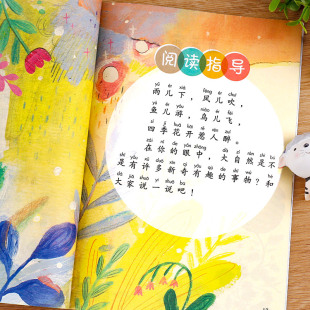 阅读指导
yǔ ér xià, fēng ér chuī,
雨儿下,风儿吹,
yú ér yóu, niǎo ér fēi,
鱼儿游,鸟儿飞,
sì jì huā kāi rě rén zuì
四季花开惹人醉。
zài nǐ de yǎn zhōng, dà zì rán shì bù
在你的眼中,大自然是不
shì yǒu xǔ duō xīn qí yǒu qù de shì wù? hé
是有许多新奇有趣的事物?和
dà jiā shuō yì shuō ba
大家说一说吧!